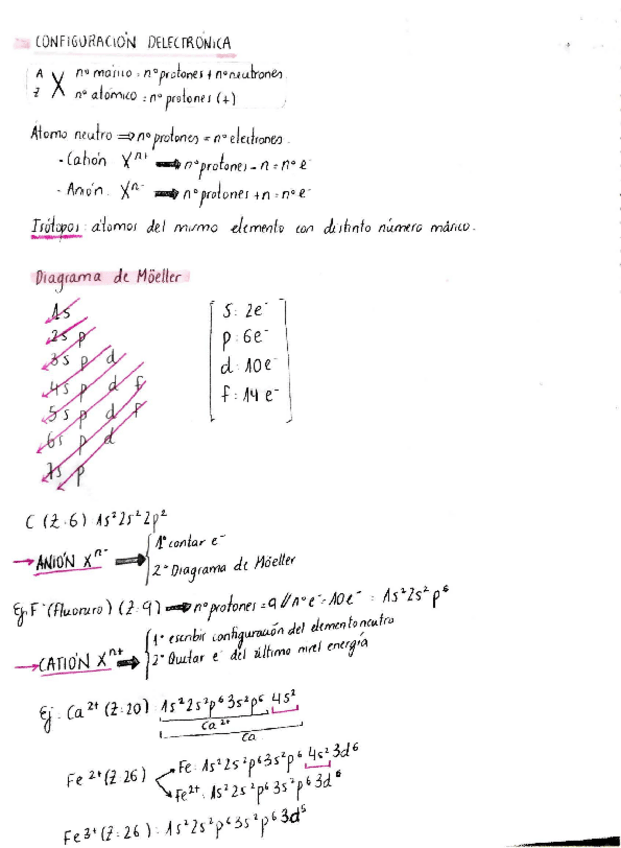 CONFIGURACIÓN DELECTRÓNICA
A
Z X nº másico = nº protones + nº neutrones
nº atómico = nº protones (+)
Átomo neutro ⇒ nº protones = nº electrones.
- Catión Xⁿ⁺ ➡ nº protones - n = nº e⁻
- Anión. Xⁿ⁻ ➡ nº protones + n = nº e⁻
Isótopos: átomos del mismo elemento con distinto número másico.
Diagrama de Möeller
1s
2s p
3s p d
4s p d f
5s p d f
6s p d
7s p
S: 2e⁻
p: 6e⁻
d: 10e⁻
f: 14 e⁻
C (Z=6) 1s² 2s² 2p²
→ ANIÓN Xⁿ⁻ ➡ 1º contar e⁻
2º Diagrama de Möeller
Ej. F⁻ (fluoruro) (Z=9) ➡ nº protones = 9 // nº e⁻ = 10e⁻ = 1s² 2s² p⁶
→ CATIÓN Xⁿ⁺ ➡ 1º escribir configuración del elemento neutro
2º Quitar e⁻ del último nivel energía
Ej. Ca²⁺ (Z=20): 1s² 2s² p⁶ 3s² p⁶ 4s²
Ca²⁺
Ca
Fe²⁺ (Z=26) Fe: 1s² 2s² p⁶ 3s² p⁶ 4s² 3d⁶
Fe²⁺: 1s² 2s² p⁶ 3s² p⁶ 3d⁶
Fe³⁺ (Z=26): 1s² 2s² p⁶ 3s² p⁶ 3d⁵